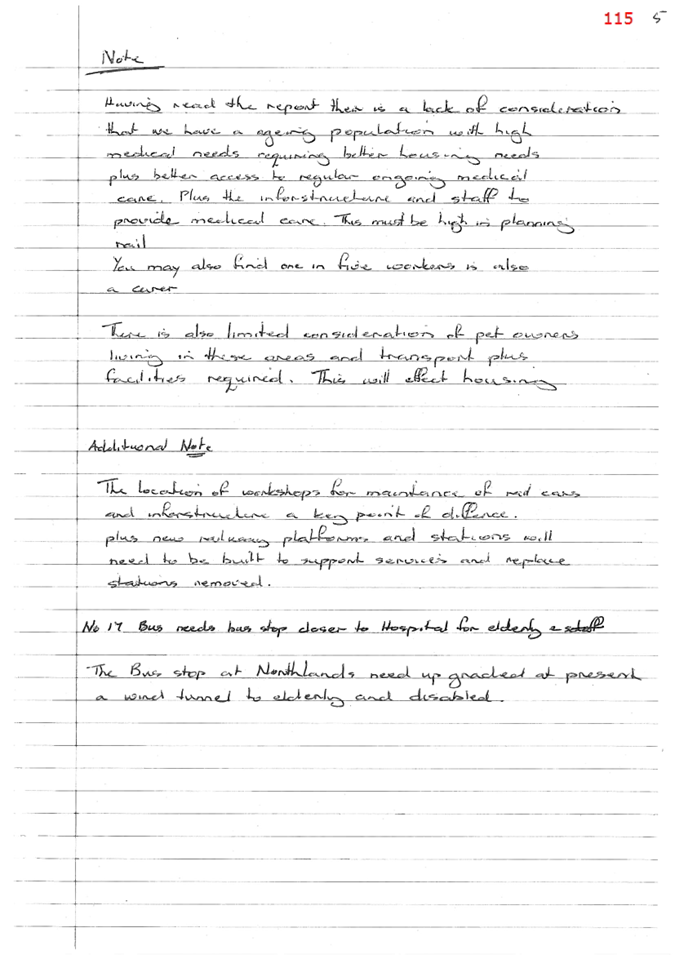 115 5
Note
Having read the report their is a lack of consideration
that we have a ageing population with high
medical needs requiring better housing needs
plus better access to regular ongoing medical
care. Plus the inforstructure and staff to
provide medical care. This must be high in planning
rail
You may also find one in five workers is also
a carer
There is also limited consideration of pet owners
living in these areas and transport plus
facilities required. This will effect housing
Additional Note
The location of workshops for maintance of rail cars
and inforstructure a key point of diffence.
plus new railway platforms and stations will
need to be built to support services and replace
stations removed.
No 17 Bus needs bus stop closer to Hospital for elderly & staff
The Bus stop at Northlands need up graded at present
a wind tunnel to elderly and disabled.